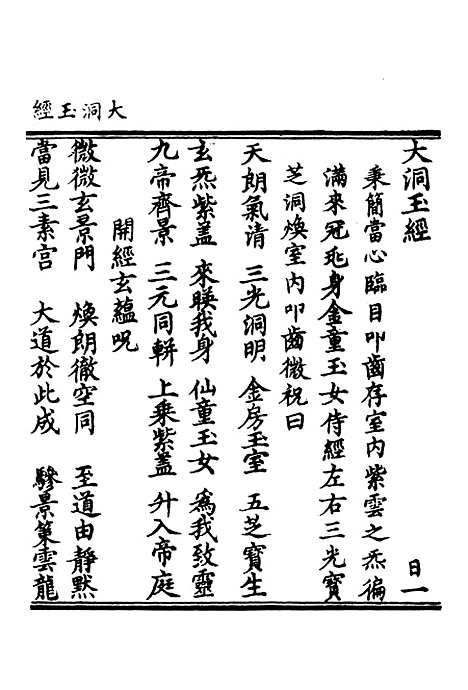 大洞玉經
大洞玉經
日一
秉簡當心臨目叩齒存室內紫雲之炁徧
滿來冠我身金童玉女侍經左右三光寶
芝洞煥室內叩齒微祝曰
天朗氣清 三光洞明 金房玉室 五芝寶生
玄炁紫蓋 來暎我身 仙童玉女 爲我致靈
九帝齊景 三元同軿 上乘紫蓋 升入帝庭
開經玄蘊呪
微微玄景門 煥朗徹空同 至道由靜默
當見三素宮 大道於此成 驂景策雲龍